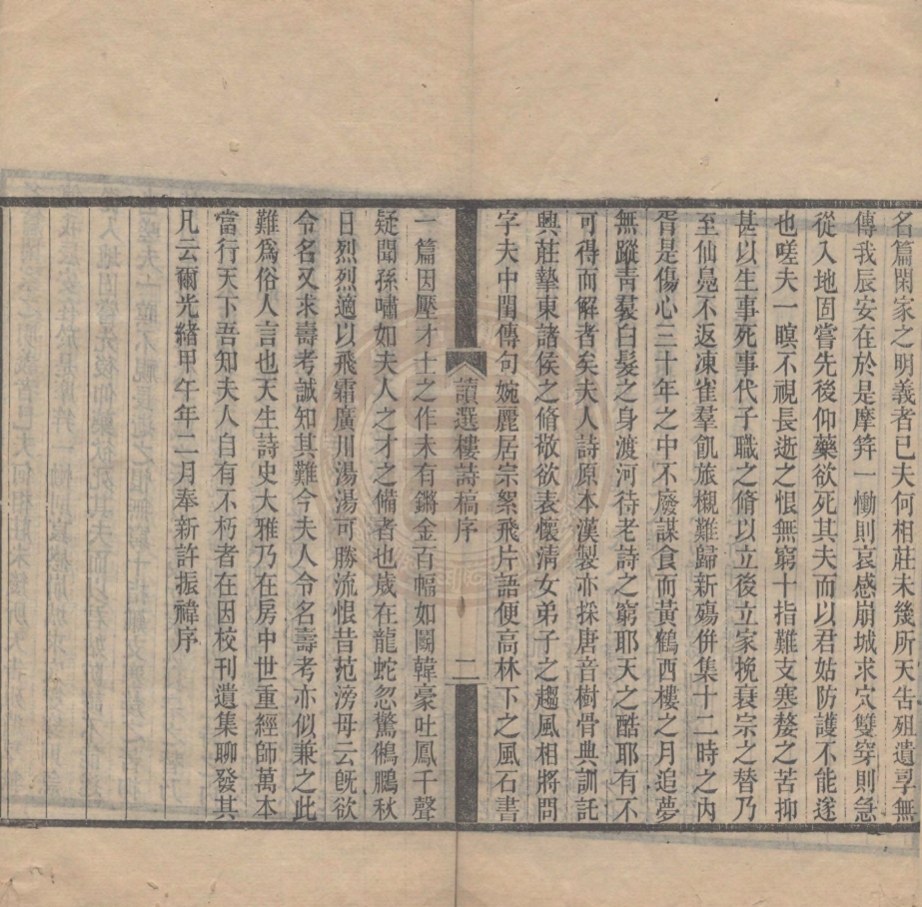 名篇閑家之明義者已夫何相莊未幾所天告殂遺孠無
傳我辰安在於是摩笄一慟則哀感崩城求穴雙穿則急
從入地固嘗先後仰藥欲死其夫而以君姑防護不能遂
也嗟夫一瞑不視長逝之恨無窮十指難支寒嫠之苦抑
甚以生事死事代子職之脩以立後立家挽衰宗之替乃
至仙鳧不返凍雀羣飢旅櫬難歸新殤併集十二時之內
胥是傷心三十年之中不廢謀食而黃鶴西樓之月追夢
無蹤靑裠白髮之身渡河待老詩之窮耶天之酷耶有不
可得而解者矣夫人詩原本漢製亦採唐音樹骨典訓託
興莊摯東諸侯之脩敬欲表懷淸女弟子之趨風相將問
字夫中閨傳句婉麗居宗絮飛片語便高林下之風石書
讀選樓詩稿序
二
一篇因壓才士之作未有鏘金百幅如闚韓豪吐鳳千聲
疑聞孫嘯如夫人之才之備者也歲在龍蛇忽驚鵂鵩秋
日烈烈適以飛霜廣川湯湯可勝流恨昔范滂母云旣欲
令名又求壽考誠知其難今夫人令名壽考亦似兼之此
難爲俗人言也天生詩史大雅乃在房中世重經師萬本
當行天下吾知夫人自有不朽者在因校刊遺集聊發其
凡云爾光緒甲午年二月奉新許振禕序